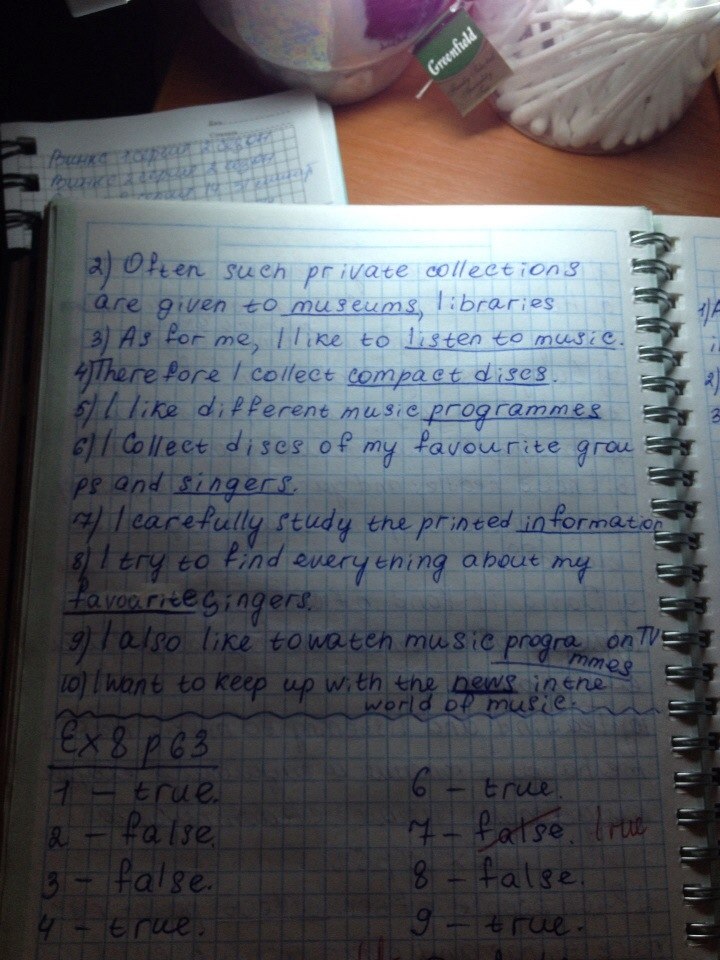 Greenfield
Винкс 1 серия 2 сезон
Винкс 2 серия 2 сезон
2) Often such private collections
are given to museums, libraries
3) As for me, I like to listen to music.
4) Therefore I collect compact discs.
5) I like different music programmes
6) I Collect discs of my favourite grou
ps and singers.
7) I carefully study the printed information
8) I try to find everything about my
favoarite singers.
9) I also like to watch music progra on TV
mmes
10) I want to keep up with the news in the
world of music.
Ex 8 p 63
1 – true.
2 – false.
3 – false.
4 – true.
6 – true.
7 – false. true
8 – false.
9 – true.
1)
2)
3